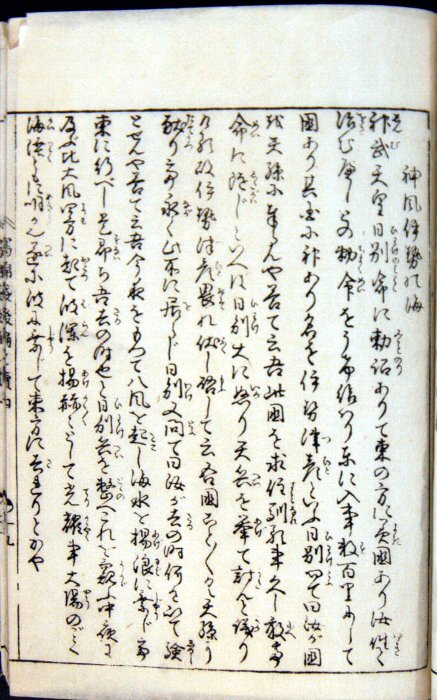 神風伊勢の海
神武天皇日別命に勅詔ありて東の方に国あり汝往て
治む屋しとの勅令をうけ給はり東に入事数百里にして
国あり其国に神あり名を伊勢津彦といふ日別問て曰汝が国
を天孫に奉らんや答て云吾此国を求得訓れ事久し敢而
命に随じといへは日別大に怒り天兵を挙て討んと議り
けれ故伊勢津彦畏れ伏し啓して云吾国ことごとく天孫に
献り亦永く此所に居らじ日別又問て曰汝が去の時何を以て験
とせんや答て云吾今夜をもつて八風を起し海水を揚浪に乗じ而
東に行べし是即ち吾去の時也と日別兵を整へこれを窺ふ中夜に
及び大風四方に起て波瀾を揚輝々として光耀事太陽のごとく
海陸も明かく遂に波に乗して東方に去りしとかや